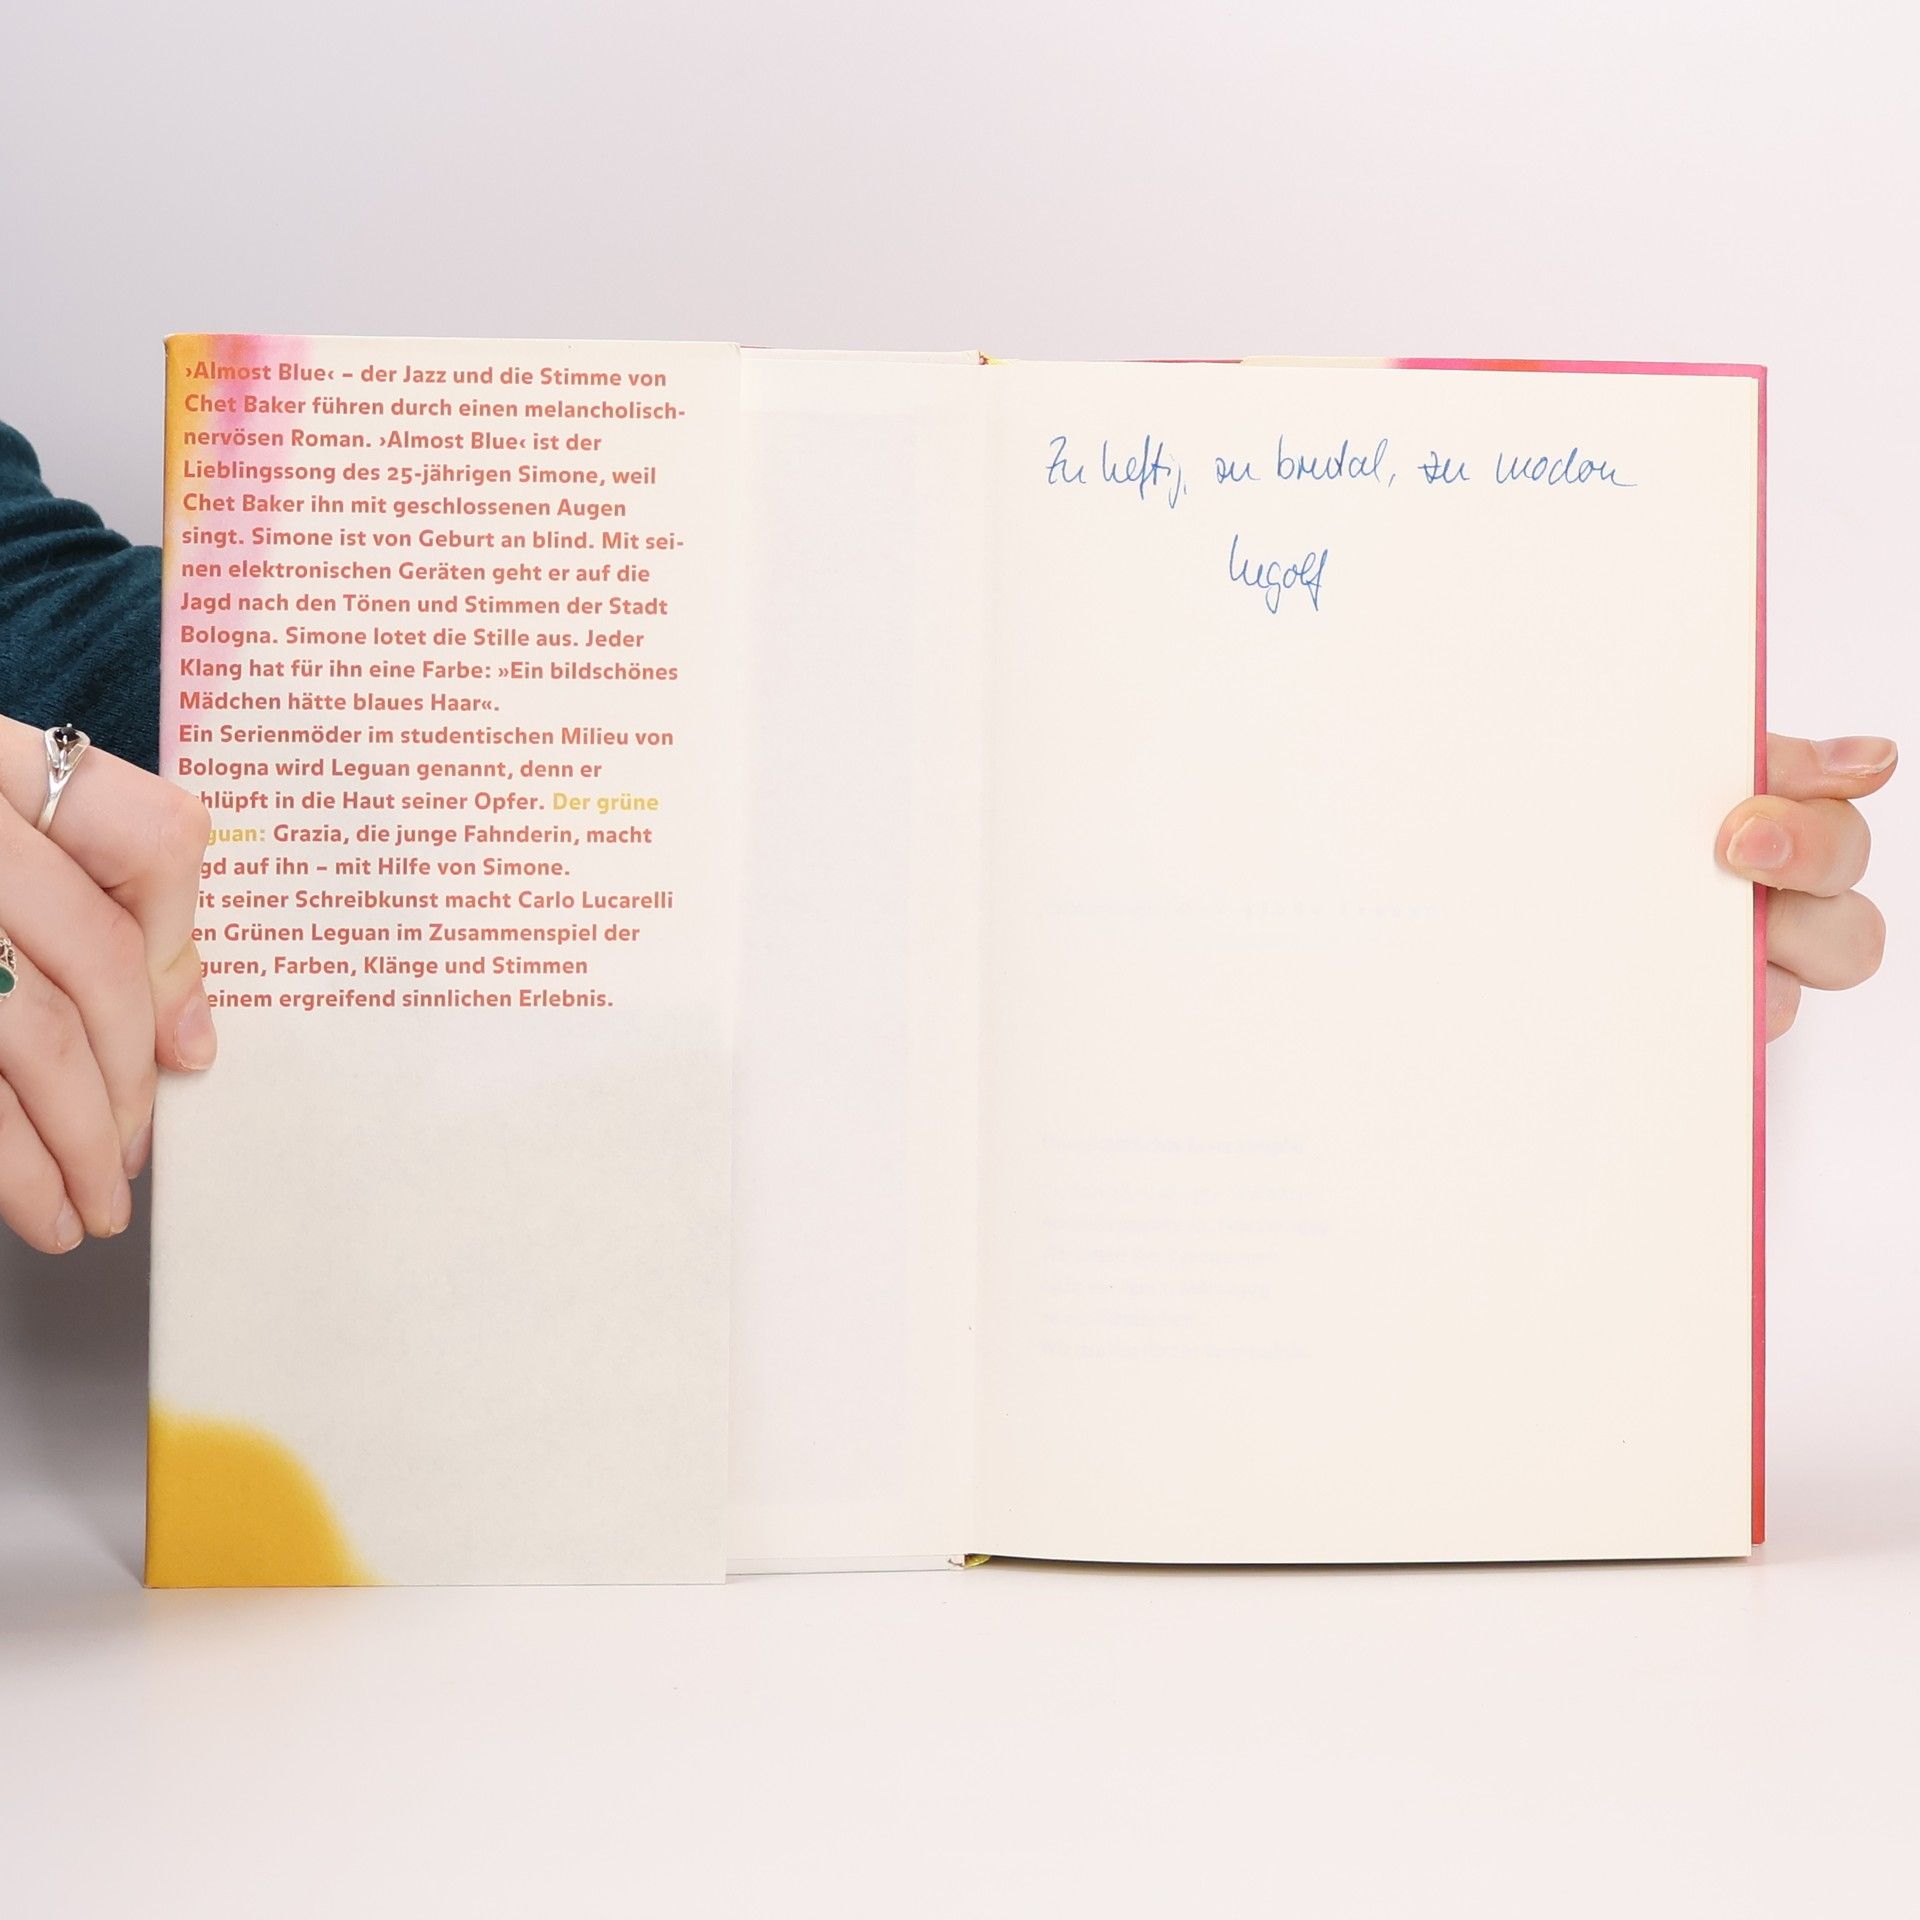 ›Almost Blue‹ – der Jazz und die Stimme von
Chet Baker führen durch einen melancholisch-
nervösen Roman. ›Almost Blue‹ ist der
Lieblingssong des 25-jährigen Simone, weil
Chet Baker ihn mit geschlossenen Augen
singt. Simone ist von Geburt an blind. Mit sei-
nen elektronischen Geräten geht er auf die
Jagd nach den Tönen und Stimmen der Stadt
Bologna. Simone lotet die Stille aus. Jeder
Klang hat für ihn eine Farbe: »Ein bildschönes
Mädchen hätte blaues Haar«.
Ein Serienmöder im studentischen Milieu von
Bologna wird Leguan genannt, denn er
hlüpft in die Haut seiner Opfer. Der grüne
guan: Grazia, die junge Fahnderin, macht
gd auf ihn – mit Hilfe von Simone.
it seiner Schreibkunst macht Carlo Lucarelli
en Grünen Leguan im Zusammenspiel der
guren, Farben, Klänge und Stimmen
einem ergreifend sinnlichen Erlebnis.
Zu heftig, zu brutal, zu modern
Ingolf